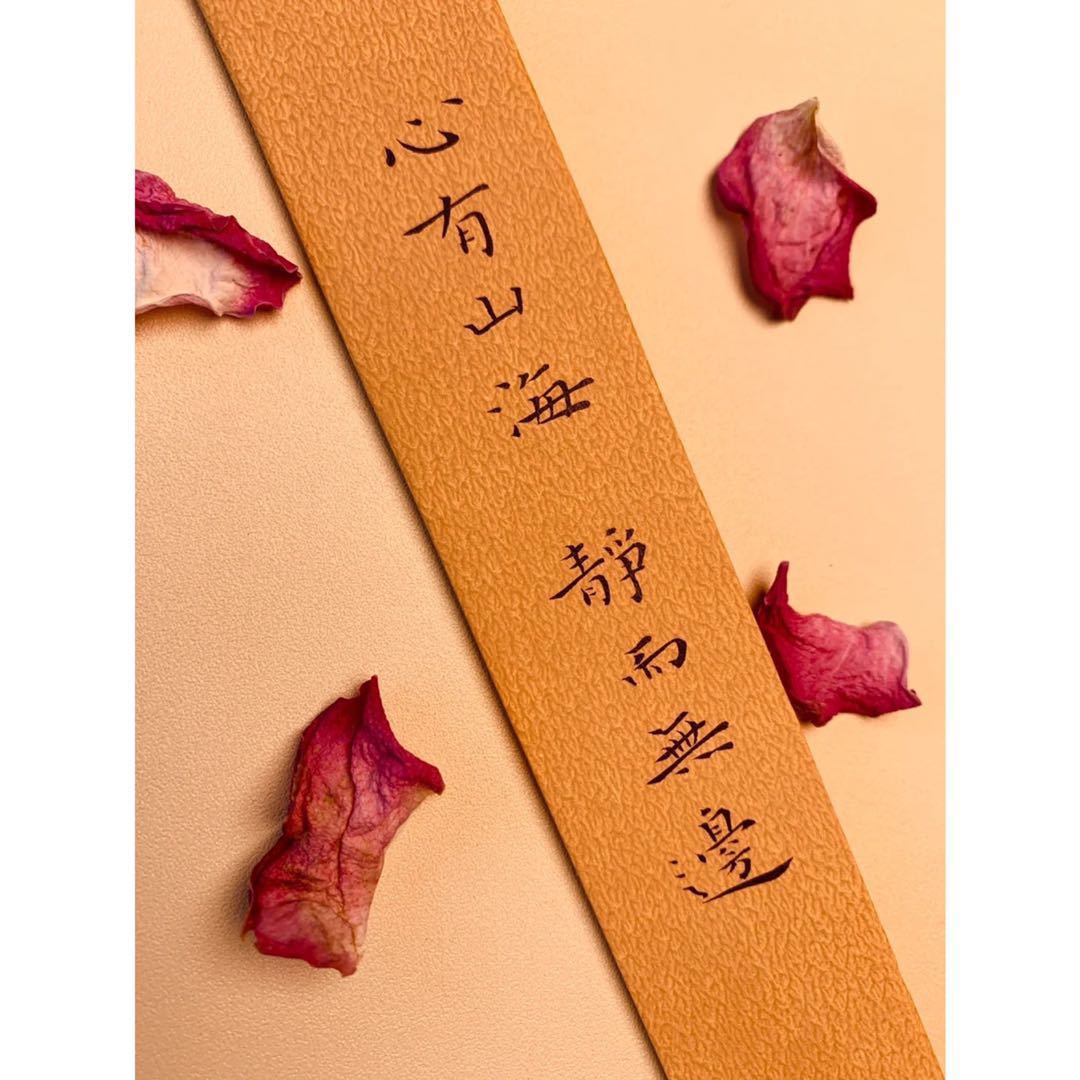 心有山海 靜而無邊